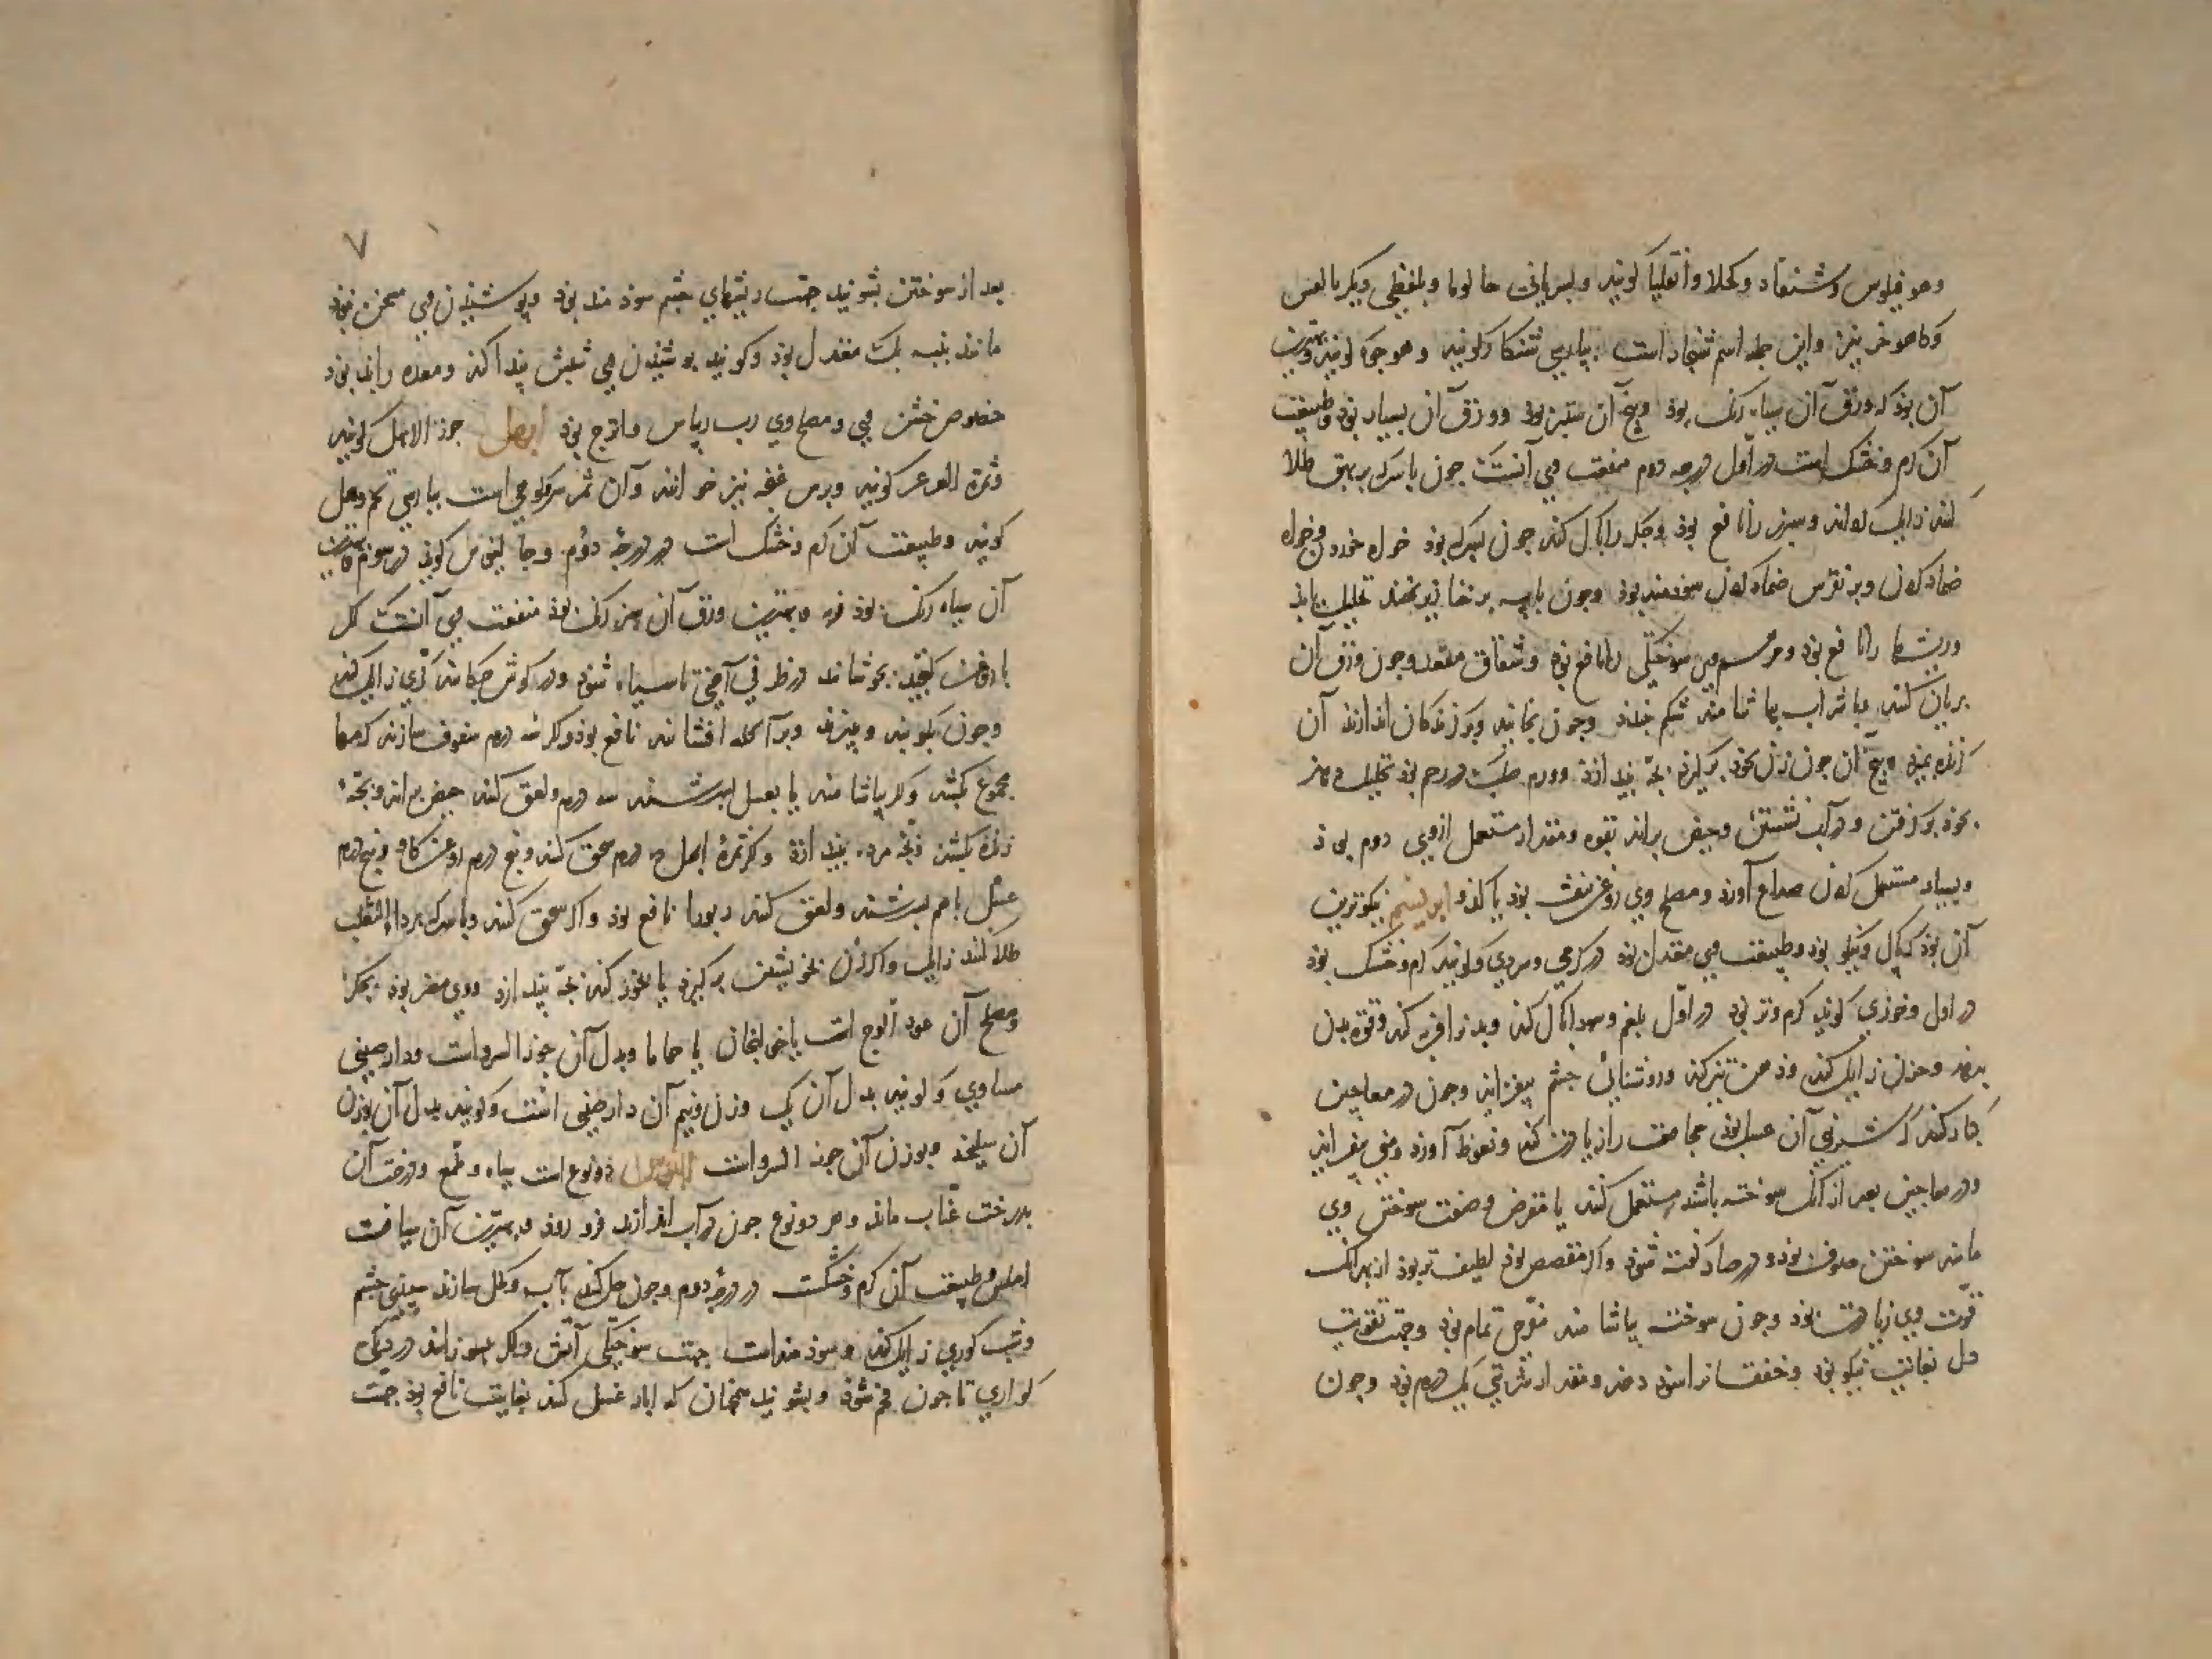 وهو فیلوس و شنقار و کحلا و انقلیا کویند و بسریانی حالوما و بلفظی دیکر بالعس
و کاهو خر نیز و این جمله اسم شنجار است بپارسی شنکار کویند و هوجوه کویند و بهترین
آن بوذ که ورق آن سیاه رنک بوذ و بیخ آن ستبر بوذ و ورق آن بسیار بوذ و طبیعت
آن کرم و خشک است در اول درجه دوم منفعت وی آنست که جون با سرکه بر بهق طلا
کنند زایل کرداند و سپرز را نافع بوذ و جکر را پاک کند جون بسرکه بوذ خواه خوردن و خواه
ضماد کردن و بر نقرس ضماد کردن سوذمند بوذ و جون با پیه بر خنازیر نهند تحلیل یابد
و ریشها را نافع بوذ و مرهم وی سوختکی را نافع بوذ و شقاق مقعد و جون ورق آن
بریان کنند و با شراب بیاشامند شکم ببندد و جون بخایند و بر کزندکان اندازند آن
کزنده بمیرد و بیخ آن جون زن بخوذ برکیرد بجه بیندازد و ورم صلب که در رحم بوذ تحلیل دهد
بخوذ برکرفتن و در آب نشستن و حیض براند بقوه و مقدار مستعمل از وی دوم بوذ
و بسیار مستعمل کردن صداع آورد و مصلح وی روغن بنفشه بوذ یا کدو ابریشم نیکوترین
آن بوذ که پاک و نیکو بوذ و طبیعت وی معتدل بوذ در کرمی و سردی و کویند کرم و خشک بوذ
در اول و خوزی کوید کرم و تر بوذ در اول بلغم و سودا پاک کند و بدن را فربه کند و قوه بدن
بدهد و حزن زایل کند و ذهن تیز کند و روشنائی جشم بیفزاید و جون در معاجین
بکار کنند که شیرینی آن عسل بوذ مجامعت را زیادت کند و نعوظ آورد و منی بیفزاید
و در معاجین بعد از آنک سوخته باشند مستعمل کنند یا مقرض و صفت سوختن وی
مانند سوختن صدف بوذ و در صاد کفته شوذ و اکر مقصص بوذ لطیف تر بوذ از بهر آنک
قوت وی زیادت بوذ و جون سوخته بیاشامند مفرح تمام بوذ و جهت تقویت
دل بغایت نیکو بوذ و خفقان را سوذ دهد و مقدار شربتی یک درم بوذ و جون
۷
بعد از سوختن بشویند جهت ریشهای جشم سوذمند بوذ و پوشیدن وی مسخن بوذ
مانند پنبه بلک معتدل بوذ و کویند پوشیدن وی شپش پیدا کند و معده را بد بوذ
خصوص خشن وی و مصلح وی رب ریباس و اترج بوذ ابهل جوز الابهل کویند
و ثمرة العرعر کویند و برس غفه نیز خوانند و آن ثمر سرو کوهی است بپارسی تخم وهل
کویند و طبیعت آن کرم و خشک است در درجه دوم و جالینوس کوید در سوم و بهترین
آن سیاه رنک بوذ فربه و بهترین ورق آن سبز رنک بوذ منفعت وی آنست که
با روغن کنجد بجوشانند در ظرفی آهنی تا سیاه شوذ و در کوش جکانند کری زایل کند
و جون بکوبند و بپزند و بر آکله افشانند نافع بوذ و اکر سه درم سفوف سازند کرمها
مجموع بکشد و اکر بیاشامند یا بعسل بسرشند سه درم و لعق کنند حیض براند و بجهٔ
زنده بکشد و بجه مرده بیندازد و اکر ثمرهٔ ابهل ده درم سحق کنند و پنج درم روغن کاو و پنج درم
عسل با هم بسرشند و لعق کنند ربو را نافع بوذ و اکر سحق کنند و با سرکه بر داء الثعلب
طلا کنند زایل و اکر زن بخویشتن برکیرد یا بخور کند بجه بیندازد و وی مضر بوذ بجکر
و مصلح آن عود الوج است یا خولنجان یا حماما و بدل آن جوز السرو است و دارصینی
مساوی و کویند بدل آن یک وزن و نیم آن دارصینی است و کویند بدل آن بوزن
آن سلیخه و بوزن آن جوز السرو است ابنوس دو نوع است سیاه و ملمع و درخت آن
بدرخت عناب ماند و هر دو نوع جون در آب اندازند فرو روذ و بهترین آن سیاهست
املس و طبیعت آن کرم و خشکست در درجه دوم و جون حل کنند بآب و کحل سازند سپیدی جشم
و شب کوری زایل کند و سوذمند است جهت سوختکی آتش و اکر بسوزانند در دیکی
کواری تا جون فحم شوذ و بشویند همجنان که ابار غسل کنند بغایت نافع بوذ جهت